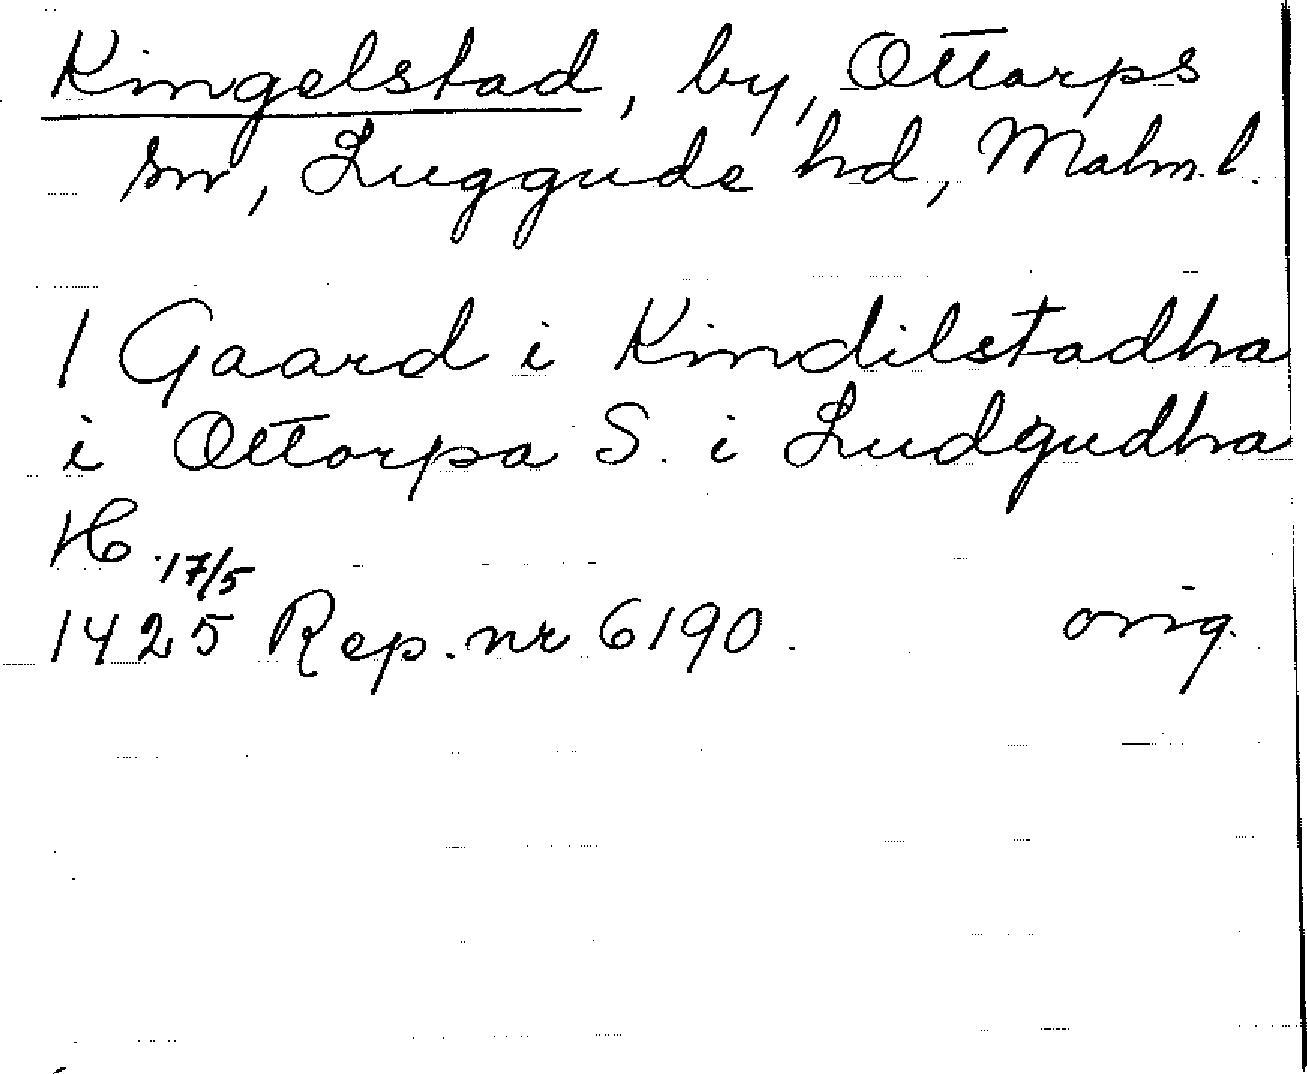 Kingelstad, by, Ottarps
sn, Luggude hd, Malm.l.
1 Gaard i Kindilstadha
i Ottorpa S. i Ludgudha
H. 17/5
1425 Rep. nr 6190. orig.